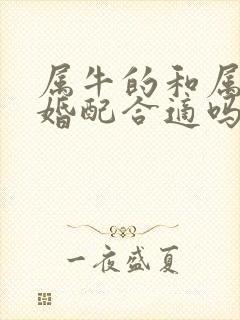 属牛的和属
婚配合适吗
一夜盛夏